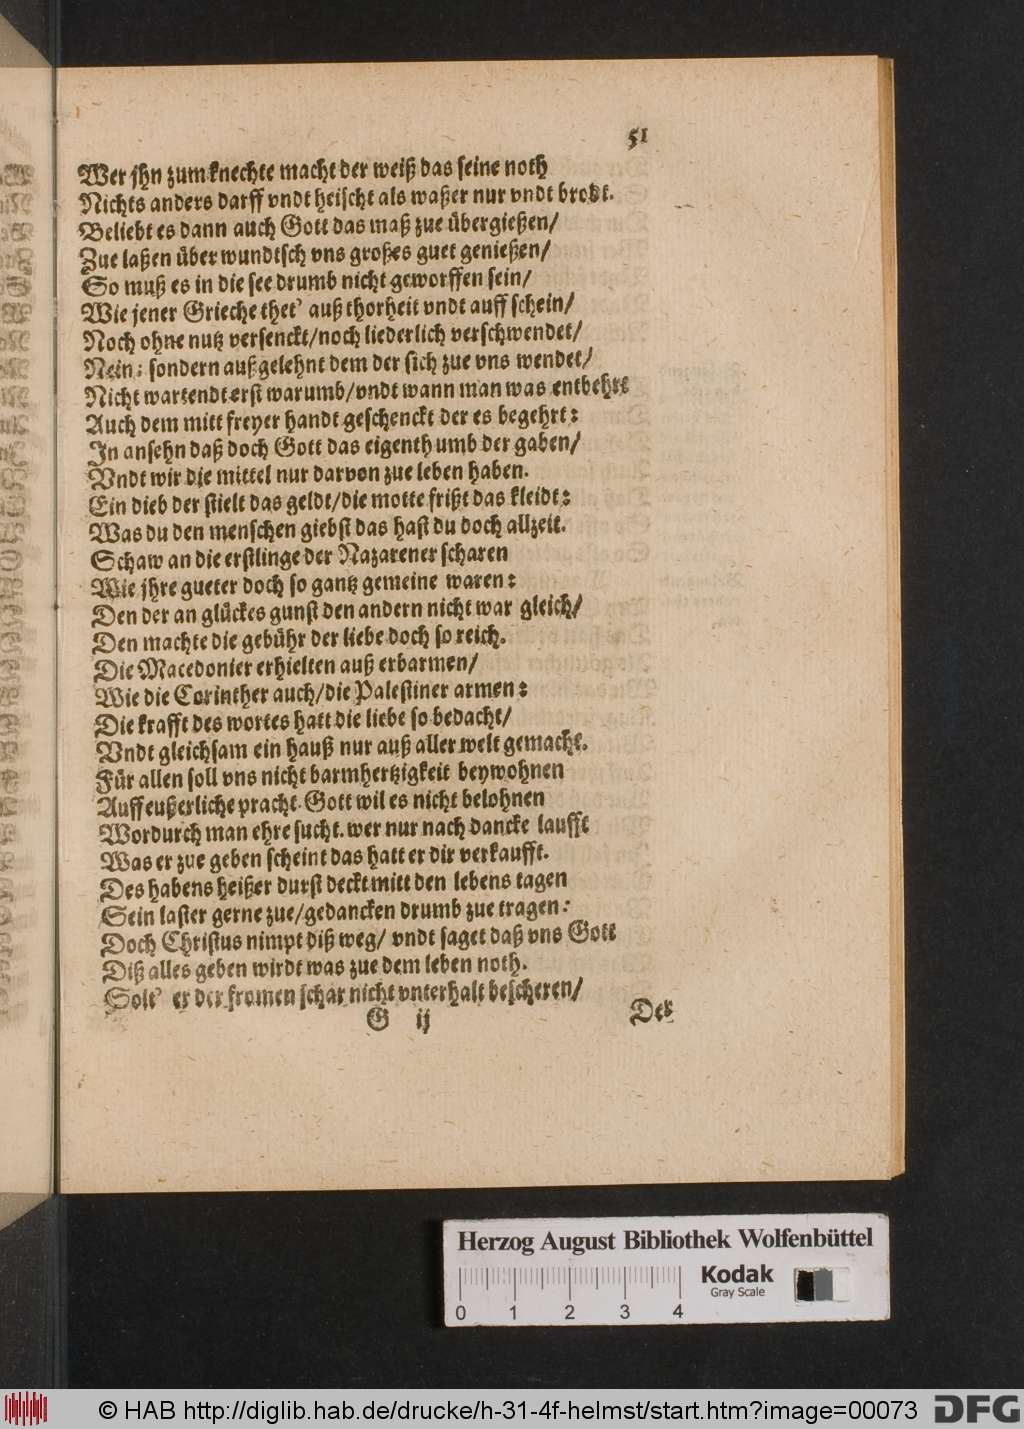 51
Wer jhn zum knechte macht der weiß das seine noth
Nichts anders darff vndt heischt als waßer nur vndt brodt.
Beliebt es dann auch Gott das maß zue übergießen/
Zue laßen über wundtsch vns großes guet genießen/
So muß es in die see drumb nicht geworffen sein/
Wie jener Grieche thet' auß thorheit vndt auff schein/
Noch ohne nutz versenckt/noch liederlich verschwendet/
Nein; sondern außgelehnt dem der sich zue vns wendet/
Nicht wartendt erst warumb/vndt wann man was entbehrt
Auch dem mitt freyer handt geschenckt der es begehrt:
In ansehn daß doch Gott das eigenthumb der gaben/
Vndt wir die mittel nur darvon zue leben haben.
Ein dieb der stielt das geldt/die motte frißt das kleidt:
Was du den menschen giebst das hast du doch allzeit.
Schaw an die erstlinge der Nazarener scharen
Wie jhre gueter doch so gantz gemeine waren:
Den der an glückes gunst den andern nicht war gleich/
Den machte die gebühr der liebe doch so reich.
Die Macedonier erhielten auß erbarmen/
Wie die Corinther auch/die Palestiner armen:
Die krafft des wortes hatt die liebe so bedacht/
Vndt gleichsam ein hauß nur auß aller welt gemacht.
Für allen soll vns nicht barmhertzigkeit beywohnen
Auff eußerliche pracht. Gott wil es nicht belohnen
Wordurch man ehre sucht. wer nur nach dancke laufft
Was er zue geben scheint das hatt er dir verkaufft.
Des habens heißer durst deckt mitt den lebens tagen
Sein laster gerne zue/gedancken drumb zue tragen:
Doch Christus nimpt diß weg/ vndt saget daß vns Gott
Diß alles geben wirdt was zue dem leben noth.
Solt' er der fromen schar nicht vnterhalt bescheren/
G ij Der
Herzog August Bibliothek Wolfenbüttel
Kodak
Gray Scale
0 1 2 3 4
© HAB http://diglib.hab.de/drucke/h-31-4f-helmst/start.htm?image=00073 DFG